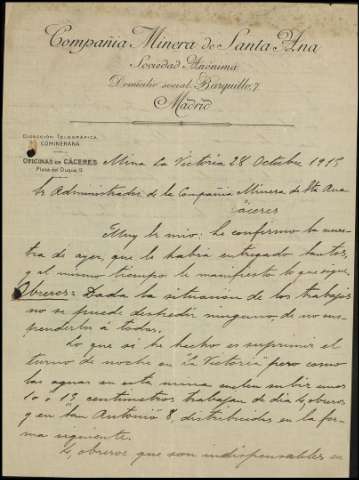 Compañía Minera de Santa Ana
Sociedad Anónima
Domicilio social: Barquillo, 7
Madrid
DIRECCIÓN TELEGRÁFICA
COMINERANA
OFICINAS EN CÁCERES
Plaza del Duque, 11
Mina La Victoria 28 Octubre 1915
Sr Administrador de la Compañia Minera de Sta Ana
Cáceres
Muy Sr mio: le confirmo la nuestra
de ayer, que le habia entregado
y al mismo tiempo le manifiesto lo que sigue,
Obreros: Dada la situación de los trabajos
no se puede despedir ninguno, de no sus-
penderlos á todos.
Lo que si he hecho es suprimir el
turno de noche en "La Victoria" pero como
las aguas en esta mina suelen subir unos
10 á 15 centimetros trabajan de dia 4 obreros
y en San Antonio 8, distribuidos en la for-
ma siguiente.
4 obreros que son indispensables en